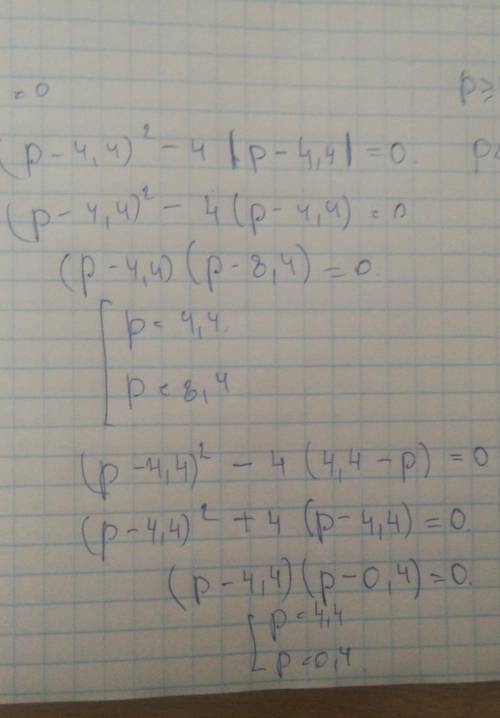 = 0
p ≥
(p - 4,4)² - 4 |p - 4,4| = 0. p <
(p - 4,4)² - 4 (p - 4,4) = 0
(p - 4,4) (p - 8,4) = 0.
[ p = 4,4.
p = 8,4
(p - 4,4)² - 4 (4,4 - p) = 0
(p - 4,4)² + 4 (p - 4,4) = 0.
(p - 4,4) (p - 0,4) = 0.
[ p = 4,4
p = 0,4.